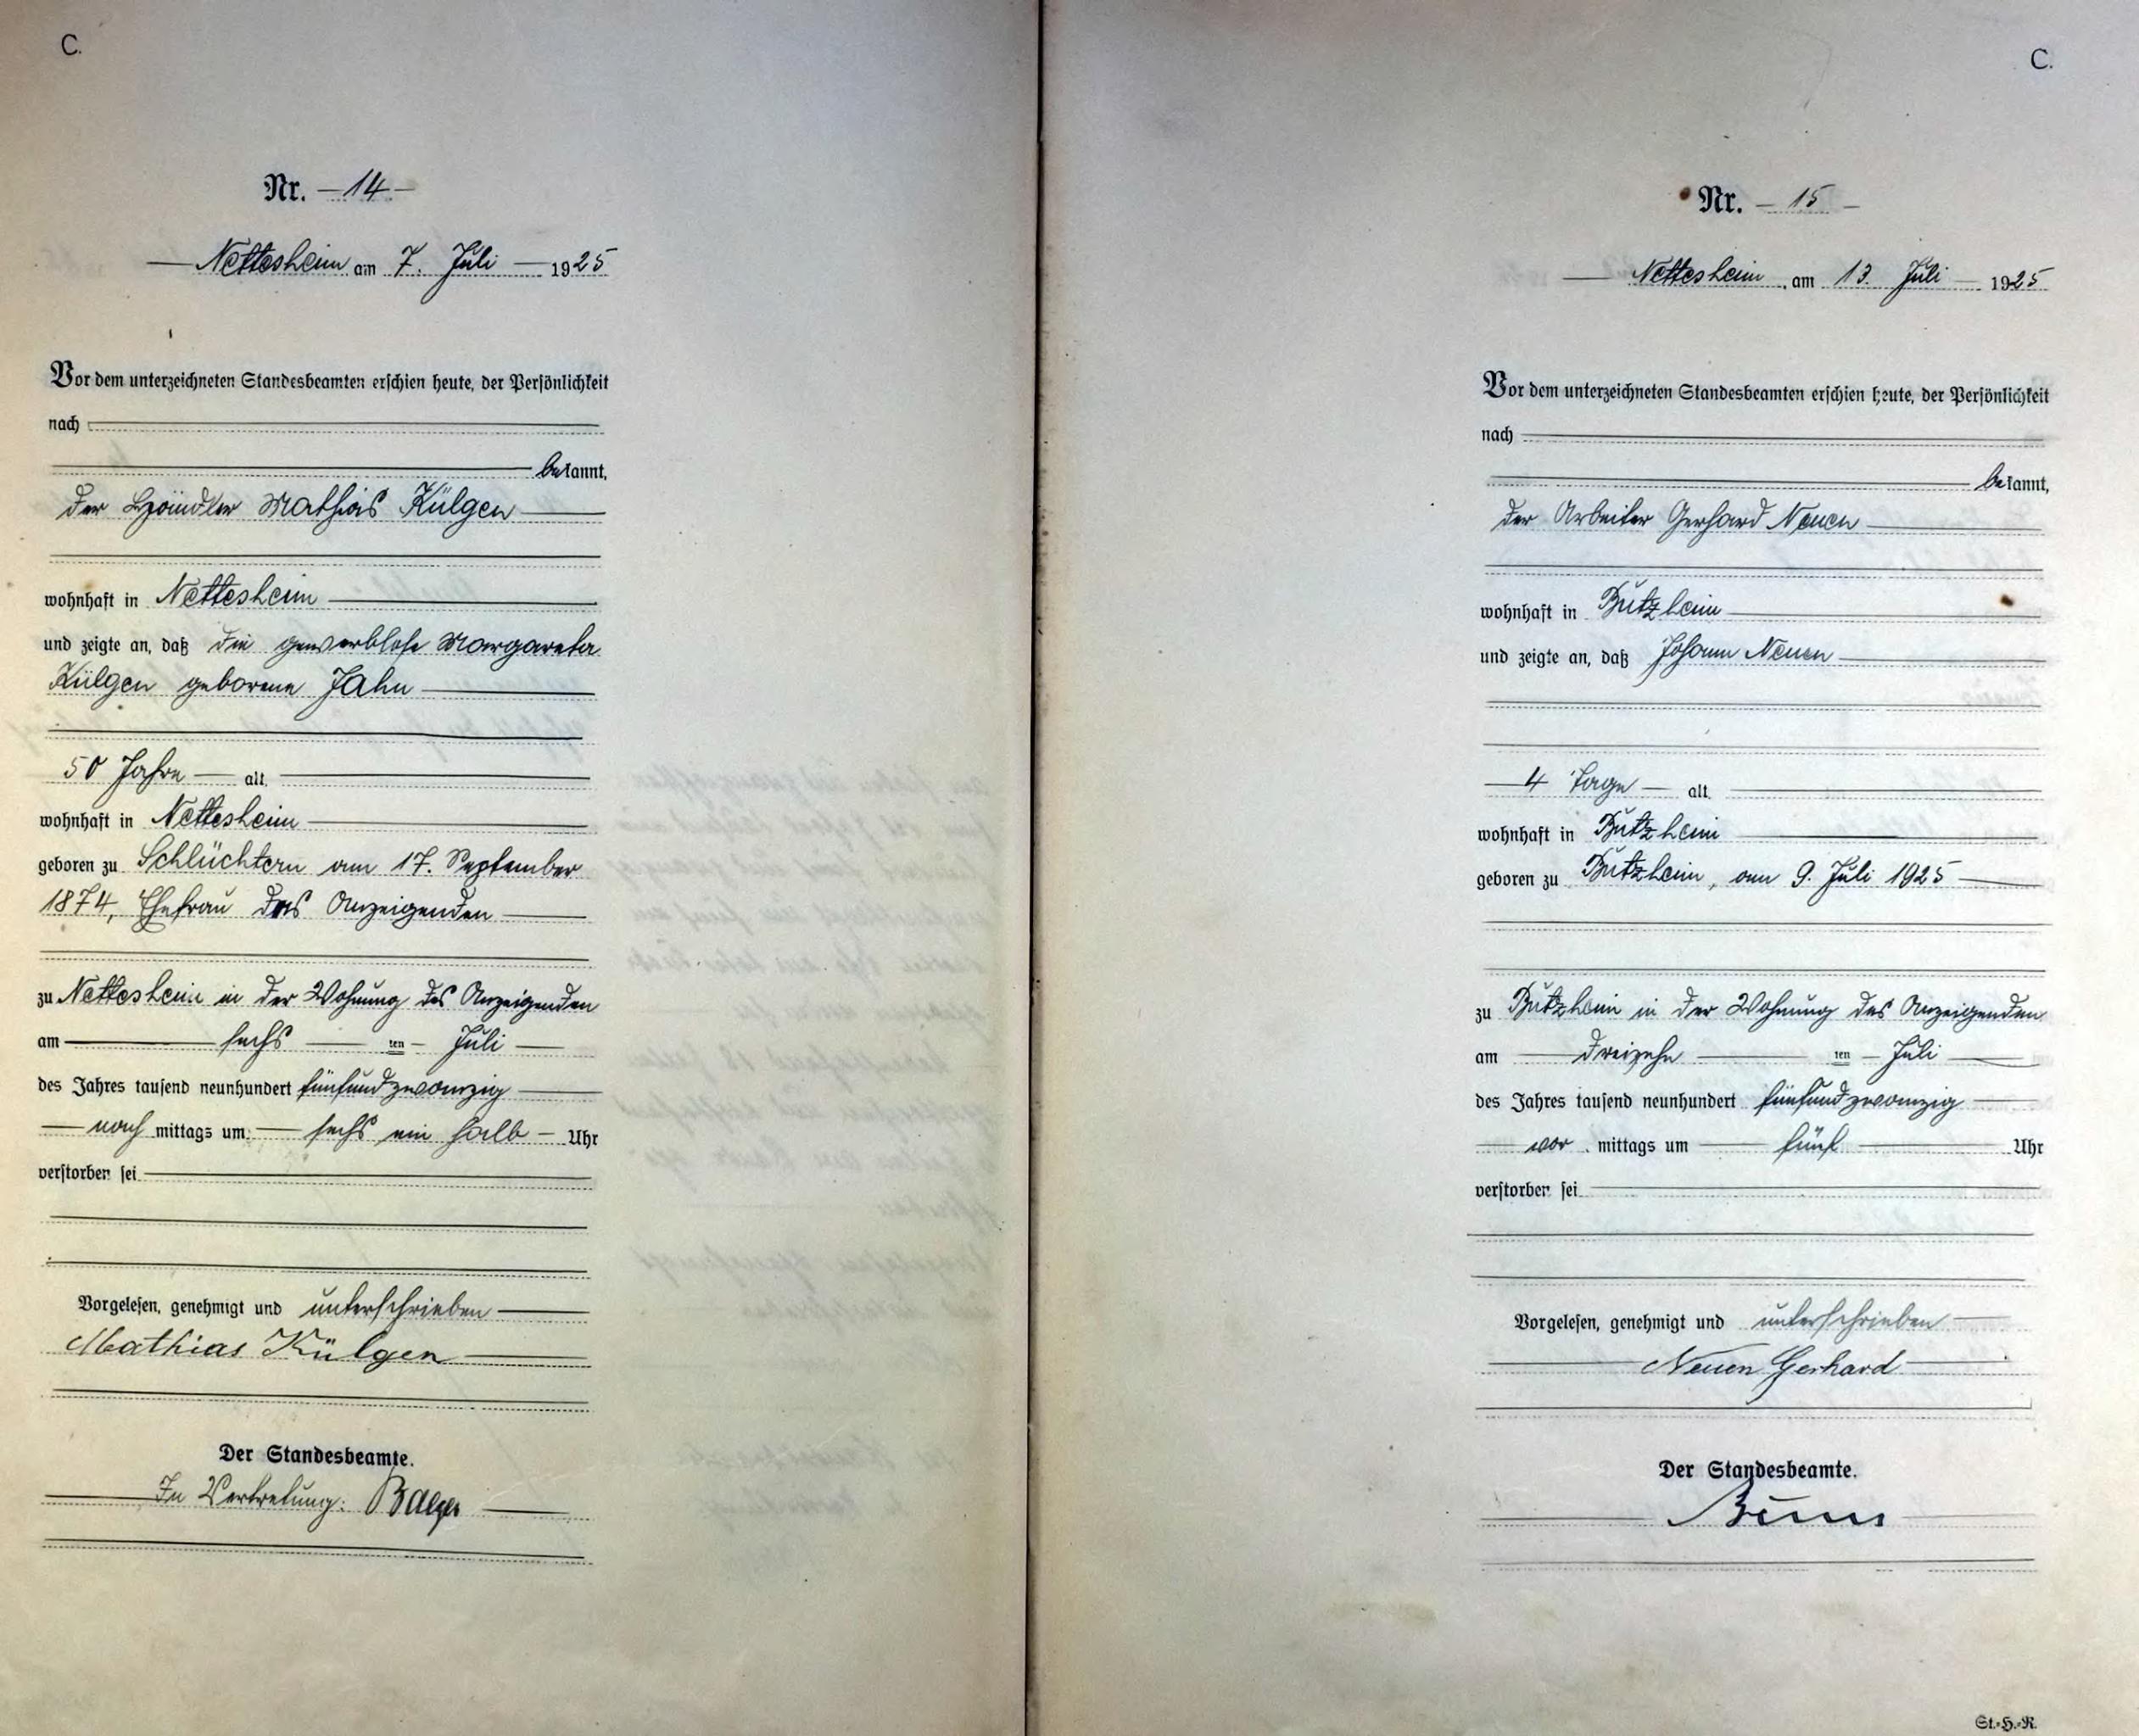 C.
Nr. 14
Nettesheim am 7. Juli 1925
Vor dem unterzeichneten Standesbeamten erschien heute, der Persönlichkeit
nach
bekannt,
der Händler Mathias Külgen
wohnhaft in Nettesheim
und zeigte an, daß die gewerblose Margareta
Külgen geborene Jahn
50 Jahre alt,
wohnhaft in Nettesheim
geboren zu Schlüchtern am 17. September
1874, Ehefrau des Anzeigenden
zu Nettesheim in der Wohnung des Anzeigenden
am sechs ten Juli
des Jahres tausend neunhundert fünfundzwanzig
nach mittags um sechs ein halb Uhr
verstorben sei
Vorgelesen, genehmigt und unterschrieben
Mathias Külgen
Der Standesbeamte.
In Vertretung:
C.
Nr. 15
Nettesheim, am 13. Juli 1925
Vor dem unterzeichneten Standesbeamten erschien heute, der Persönlichkeit
nach
bekannt,
der Arbeiter Gerhard Neuen
wohnhaft in Butzheim
und zeigte an, daß Johann Neuen
4 Tage alt,
wohnhaft in Butzheim
geboren zu Butzheim, am 9. Juli 1925
zu Butzheim in der Wohnung des Anzeigenden
am dreizehn ten Juli
des Jahres tausend neunhundert fünfundzwanzig
vor mittags um fünf Uhr
verstorben sei
Vorgelesen, genehmigt und unterschrieben
Neuen Gerhard
Der Standesbeamte.
St.-H.-R.